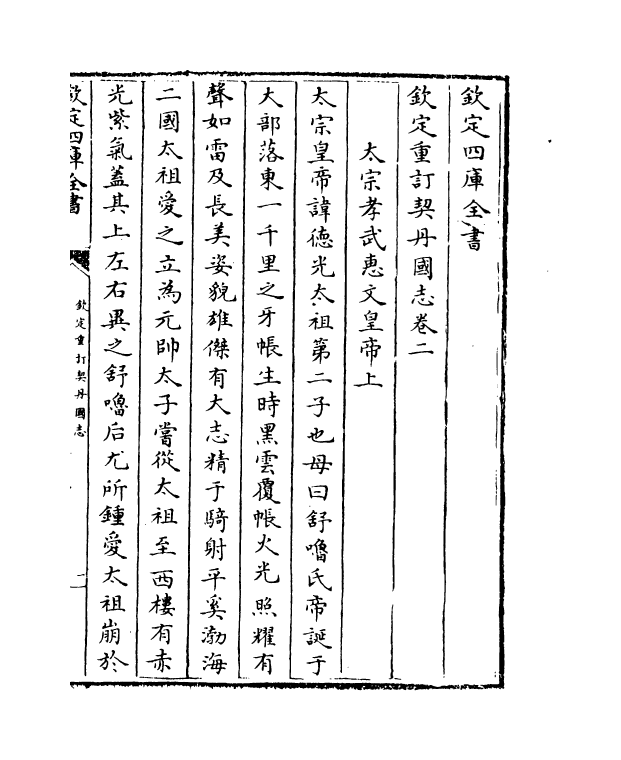 欽定四庫全書
欽定重訂契丹國志卷二
太宗孝武惠文皇帝上
太宗皇帝諱德光太祖第二子也母曰舒嚕氏帝誕于
大部落東一千里之牙帳生時黑雲覆帳火光照耀有
聲如雷及長美姿貌雄傑有大志精于騎射平奚渤海
二國太祖愛之立為元帥太子嘗從太祖至西樓有赤
光紫氣蓋其上左右異之舒嚕后尤所鍾愛太祖崩於
欽定四庫全書
欽定重訂契丹國志